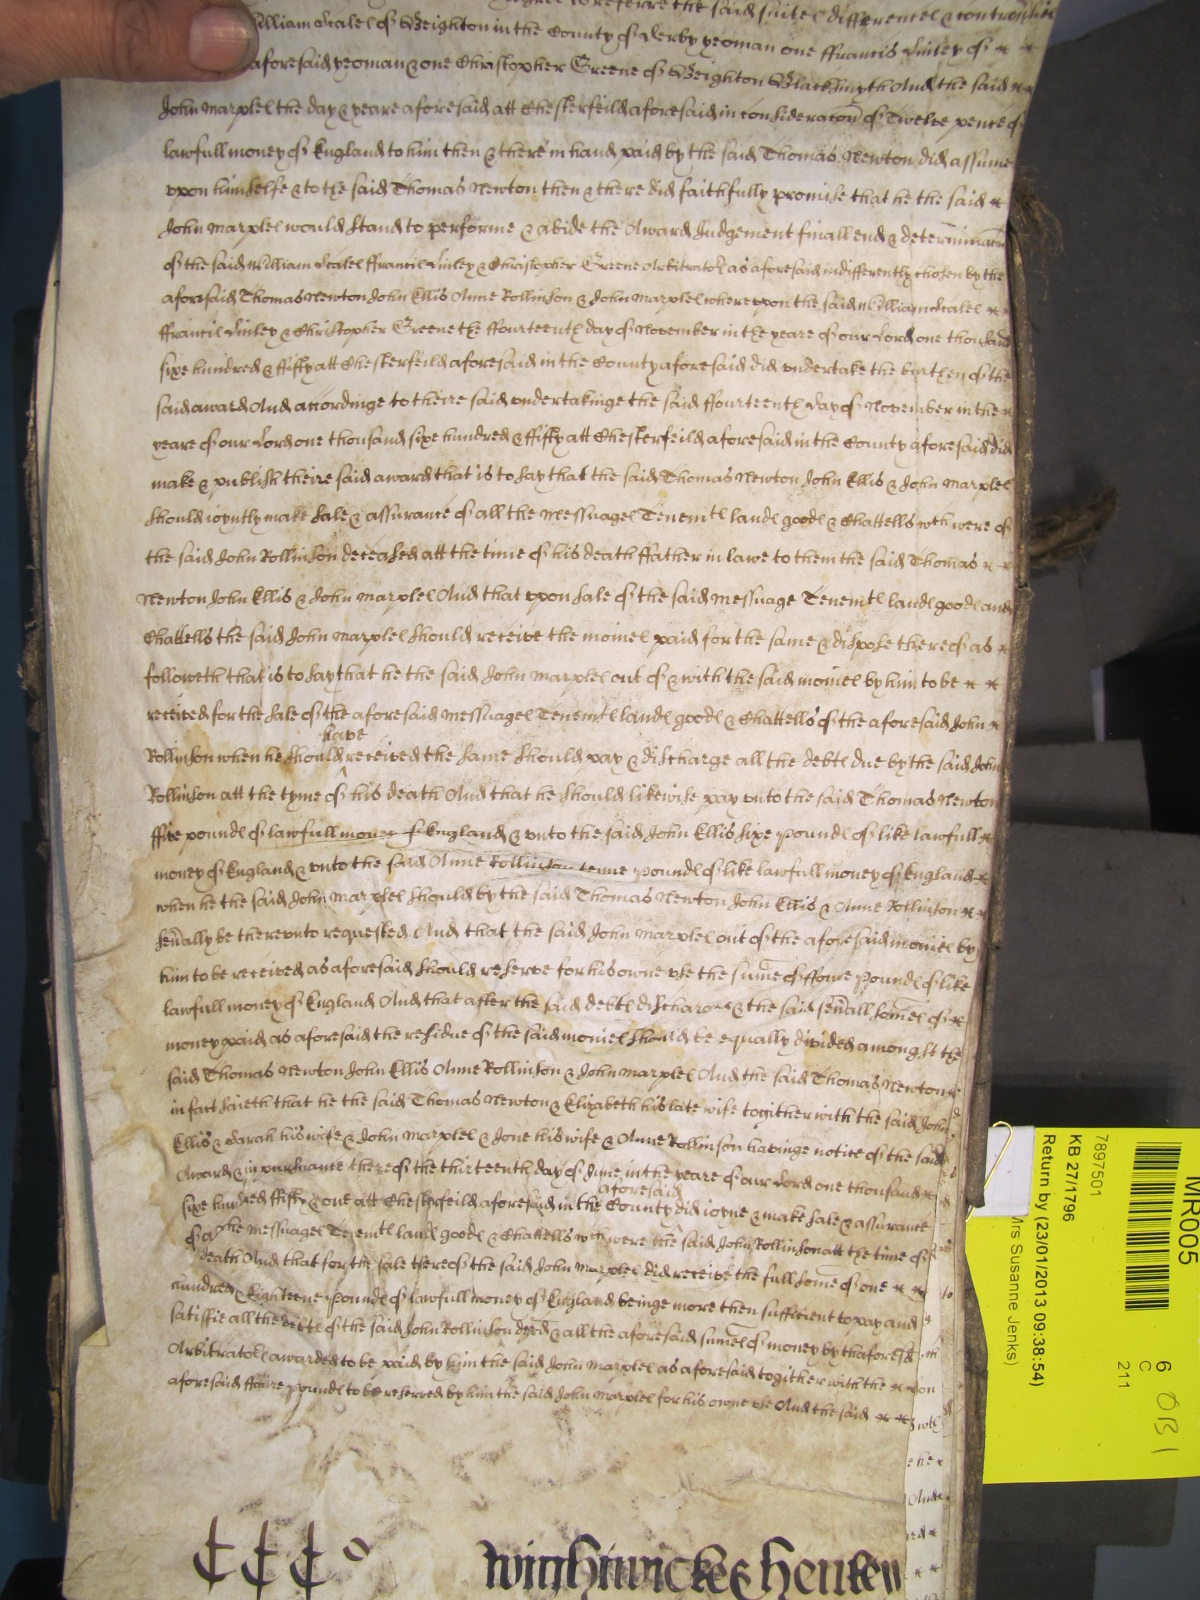 to referre the said suites differences & controversies
William Scales of Weighton in the County of Derby yeoman one ffrancis Linley of
aforesaid yeoman & one Christopher Greene of Weighton Blacksmyth And the said
John Marples the day & yeare aforesaid att Chesterfeild aforesaid in consideracon of Twelve pence of
lawfull money of England to him then & there in hand paid by the said Thomas Newton did assume
vpon himselfe & to the said Thomas Newton then & there did faithfully promise that he the said
John Marples would stand to performe & abide the Award Judgement finall end & determinacon
of the said William Scales ffrancis Linley & Christopher Greene Arbitrators as aforesaid indifferently chosen by the
aforesaid Thomas Newton John Ellis Anne Rollinson & John Marples wherevpon the said William Scales
ffrancis Linley & Christopher Greene the ffourteenth day of November in the yeare of our Lord one thousand
sixe hundred & ffifty att Chesterfeild aforesaid in the County aforesaid did vndertake the burthen of the
said award And accordinge to theire said vndertakinge the said ffourteenth day of November in the
yeare of our Lord one thousand sixe hundred & ffifty att Chesterfeild aforesaid in the County aforesaid did
make & publish theire said award that is to say that the said Thomas Newton John Ellis & John Marples
should ioyntly make sale & assurance of all the Messuages Tenemts lands goods & Chattells wch were of
the said John Rollinson deceased att the time of his death ffather in lawe to them the said Thomas
Newton John Ellis & John Marples And that vpon sale of the said Messuage Tenemts lands goods and
Chattells the said John Marples should receive the monies paid for the same & dispose thereof as
followeth that is to say that he the said John Marples out of & with the said monies by him to be
received for the sale of the aforesaid Messuages Tenemts lands goods & Chattells of the aforesaid John
have
Rollinson when he should received the same should pay & discharge all the debts due by the said John
Rollinson att the tyme of his death And that he should likewise pay vnto the said Thomas Newton
ffive pounds of lawfull money of England & vnto the said John Ellis sixe pounds of like lawfull
money of England & vnto the said Anne Rollinson tenne pounds of like lawfull money of England
when he the said John Marples should by the said Thomas Newton John Ellis & Anne Rollinson
sevally be therevnto requested And that the said John Marples out of the aforesaid monies by
him to be received as aforesaid should reserve for his owne vse the sume of ffoure pounds of like
lawfull money of England And that after the said debts discharged & the said sevall somes of
money paid as aforesaid the residue of the said monies should be equally divided amongst the
said Thomas Newton John Ellis Anne Rollinson & John Marples And the said Thomas Newton
in fact saieth that he the said Thomas Newton & Elizabeth his late wife togither with the said John
Ellis & Sarah his wife & John Marples & Jone his wife & Anne Rollinson havinge notice of the said
Award & in pursuance thereof the thirteenth day of June in the yeare of our Lord one thousand
aforesaid
sixe hundred ffifty & one att Chesterfeild aforesaid in the County did ioyne & make sale & assurance
of the Messuages Tenemts lands goods & Chattells wch were the said John Rollinson att the time of
death And that for the sale thereof the said John Marples did receive the full some of one
hundred & Eighteene pounds of lawfull money of England beinge more then sufficient to pay and
satisfie all the debts of the said John Rollinson deced & all the aforesaid sumes of money by thaforesd
Arbitrators awarded to be paid by him the said John Marples as aforesaid togither with the
aforesaid ffoure pounds to be reserved by him the said John Marples for his owne vse And the said
MR005
7897501
KB 27/1796
Return by (23/01/2013 09:38:54)
Mrs Susanne Jenks)
6
C
211